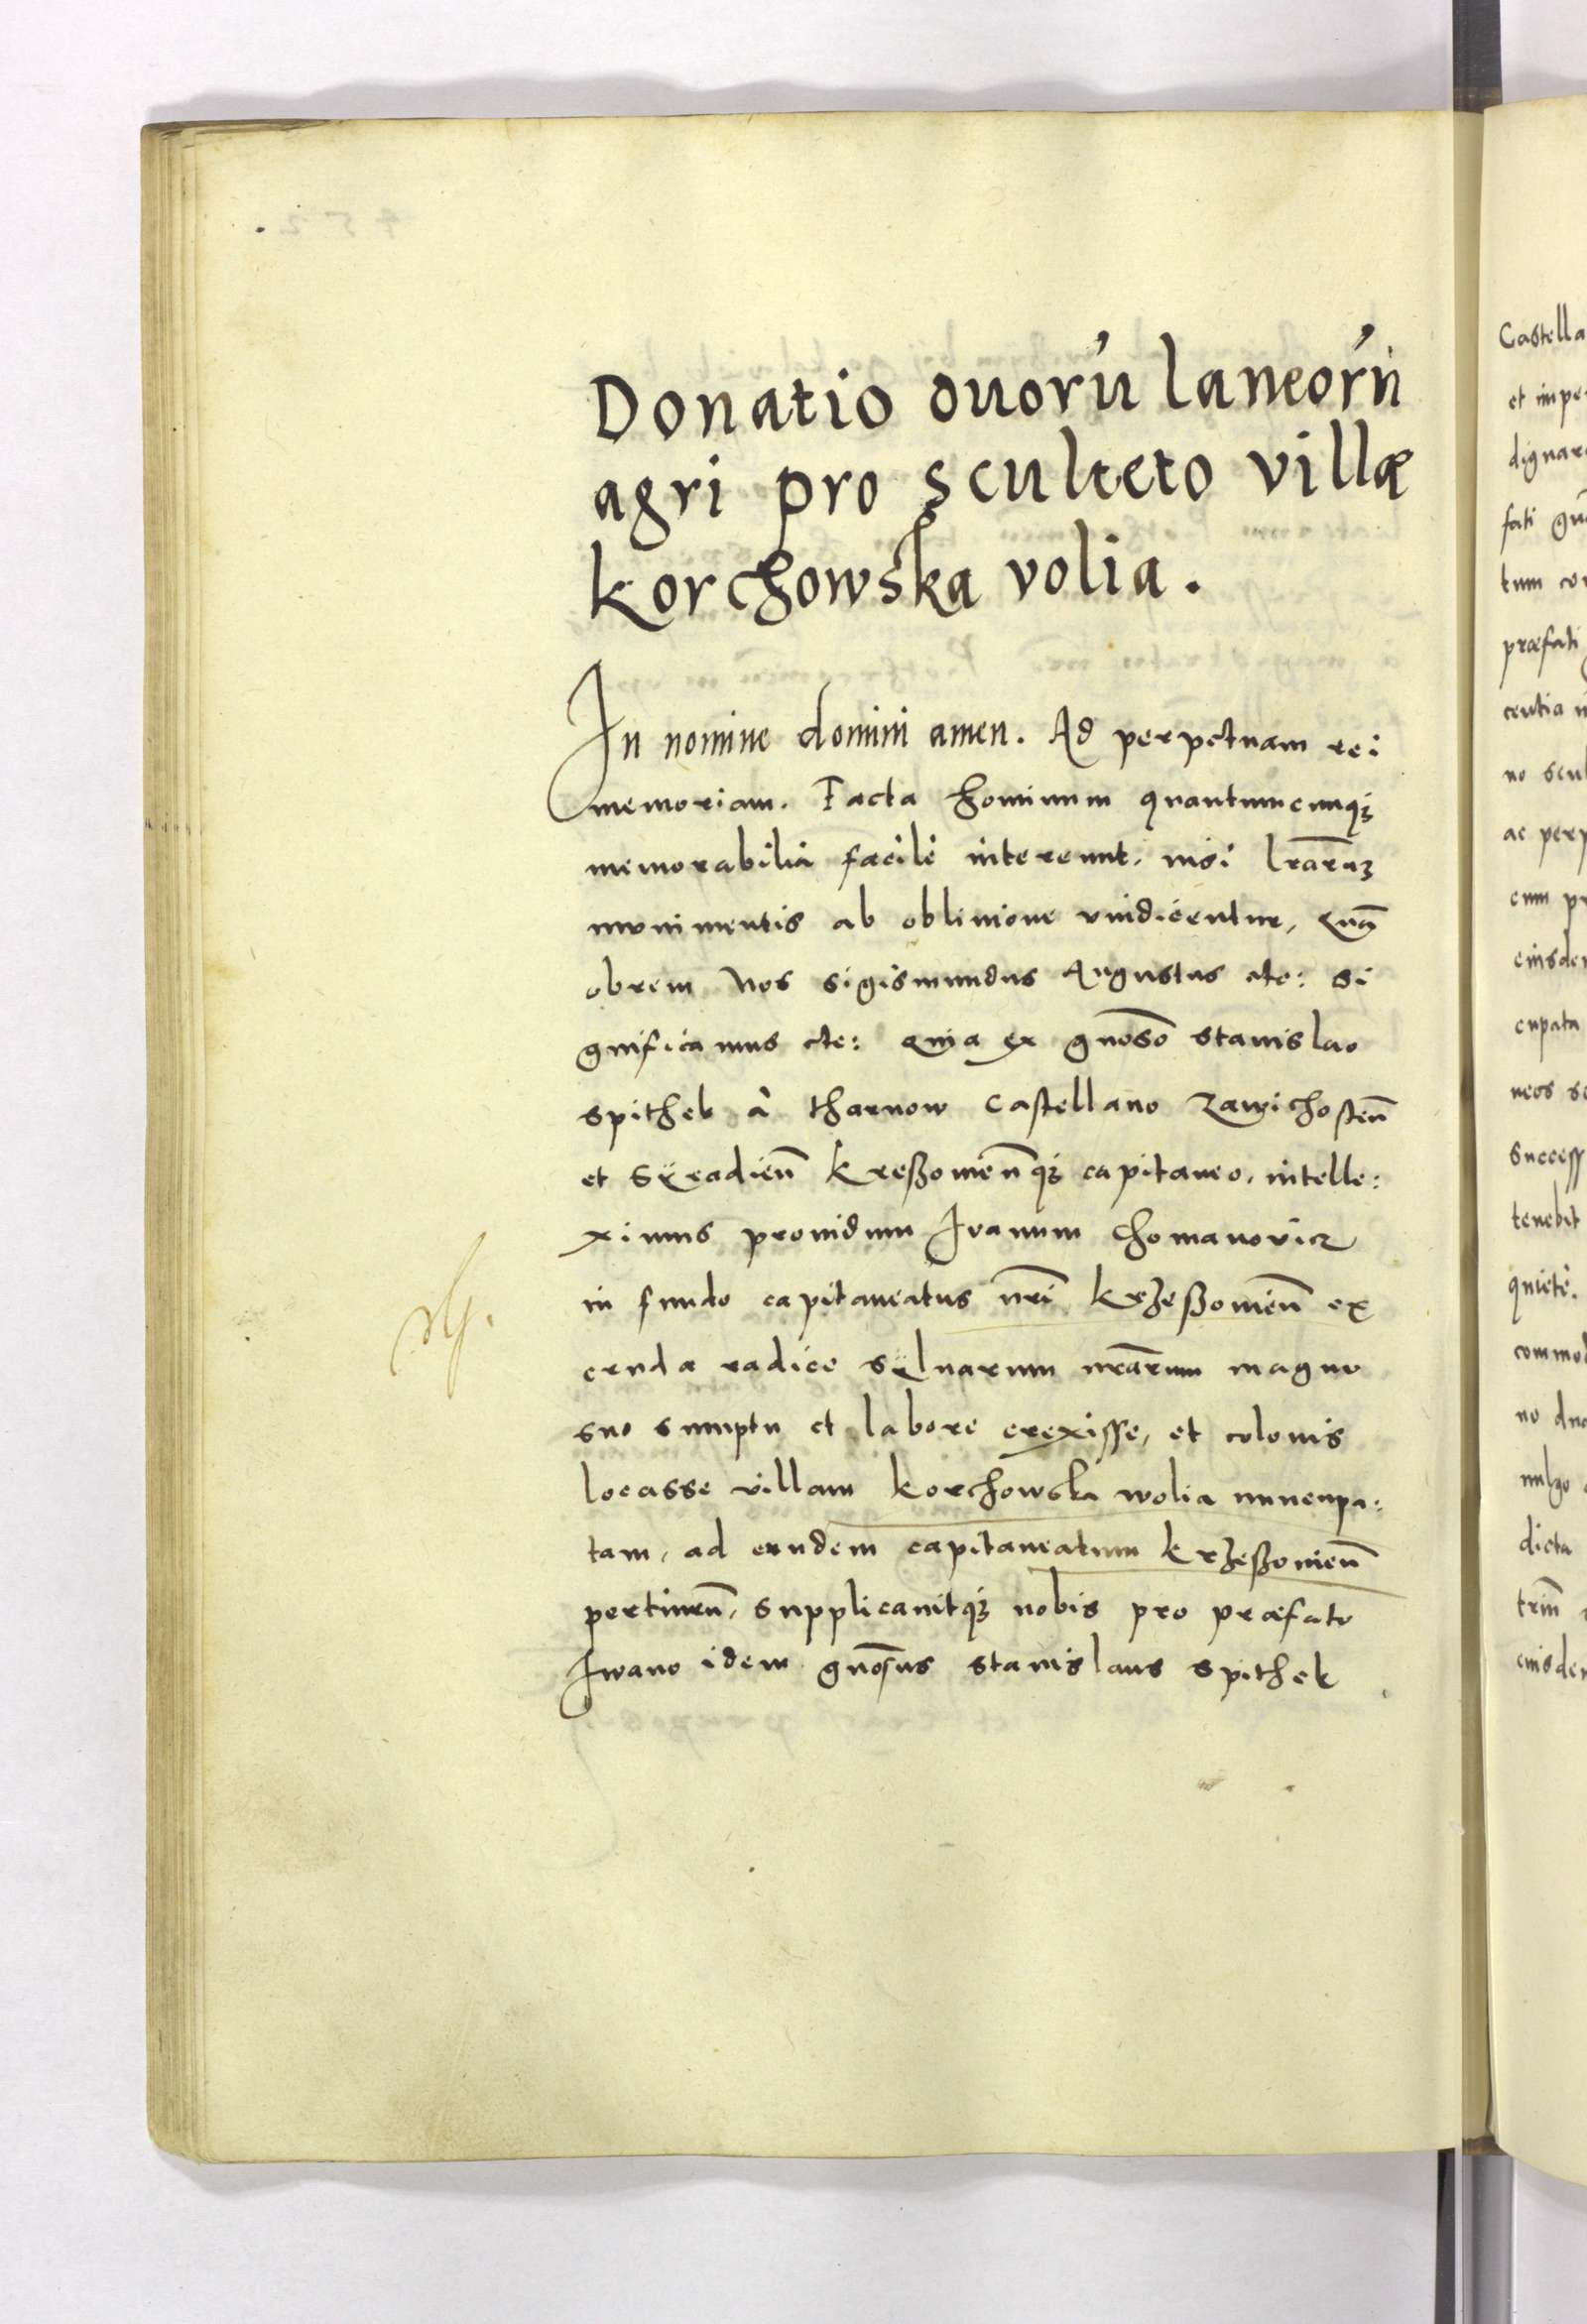 Donatio duorū laneorū
agri pro sculteto villæ
korchowska volia.
In nomine domini amen. Ad perpetuam rei
memoriam. Facta hominum quantumcunq₃
memorabilia facilè intereunt, nisi lrārū
monimentis ab obliuione vindicentur, Quā
obrem Nos Sigismundus Augustus etc: Si
gnificamus etc: Quia ex gn̄oso Stanislao
Spithek à Tharnow Castellano Zawichosten̄
et Sÿradien̄ kreßouien̄q₃ capitaneo, intelle:
ximus prouidum Iuanum Chomanovicz
in fundo capitaneatus nr̄i krzeßouien̄ ex
cruda radice sÿluarum nrārum magno
suo sumptu et labore erexisse, et colonis
locasse villam korchowska wolia nuncupa:
tam, ad eundem capitaneatum krzeßouien̄
pertinen̄, supplicauitq₃ nobis pro præfato
Iwano idem gn̄osus Stanislaus Spithek
Castella
et impe
dignar
fati
tum co
præfati
centia
no scul
ac perp
cum pr
eiusde
cupata
neos sc
Success
tenebit
quietè.
commod
no du
dicta
eiusde